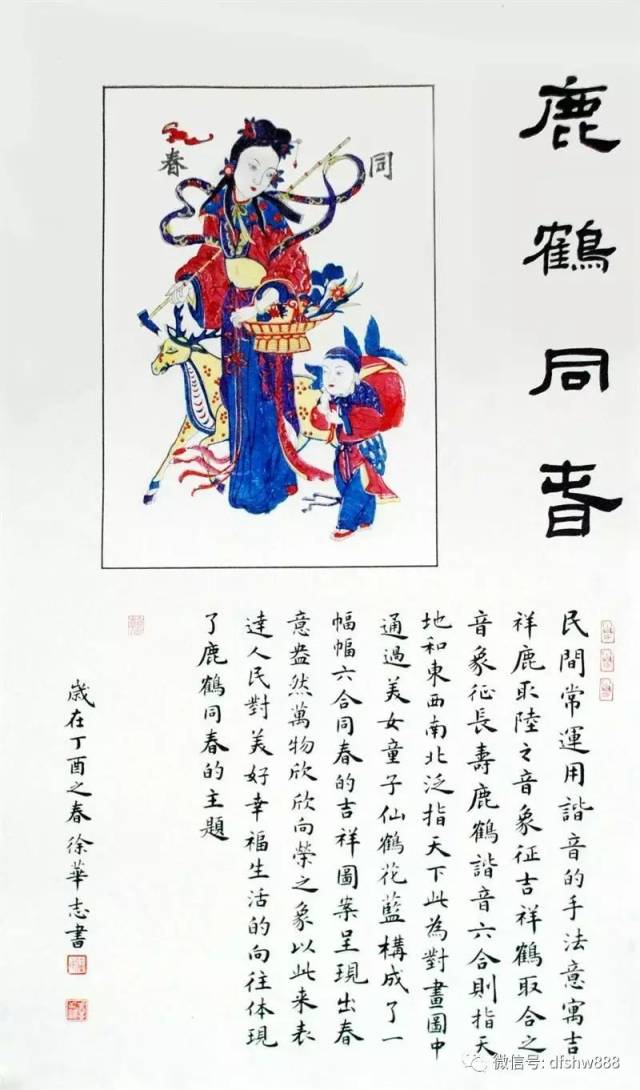 鹿鶴同春
同春
民間常運用諧音的手法意寓吉
祥鹿取陸之音象征吉祥鶴取合之
音象征長壽鹿鶴諧音六合則指天
地和東西南北泛指天下此為對畫圖中
通過美女童子仙鶴花藍構成了一
幅幅六合同春的吉祥圖案呈現出春
意盎然萬物欣欣向榮之象以此來表
達人民對美好幸福生活的向往体現
了鹿鶴同春的主題
歲在丁酉之春徐華志書
微信号: dfshw888